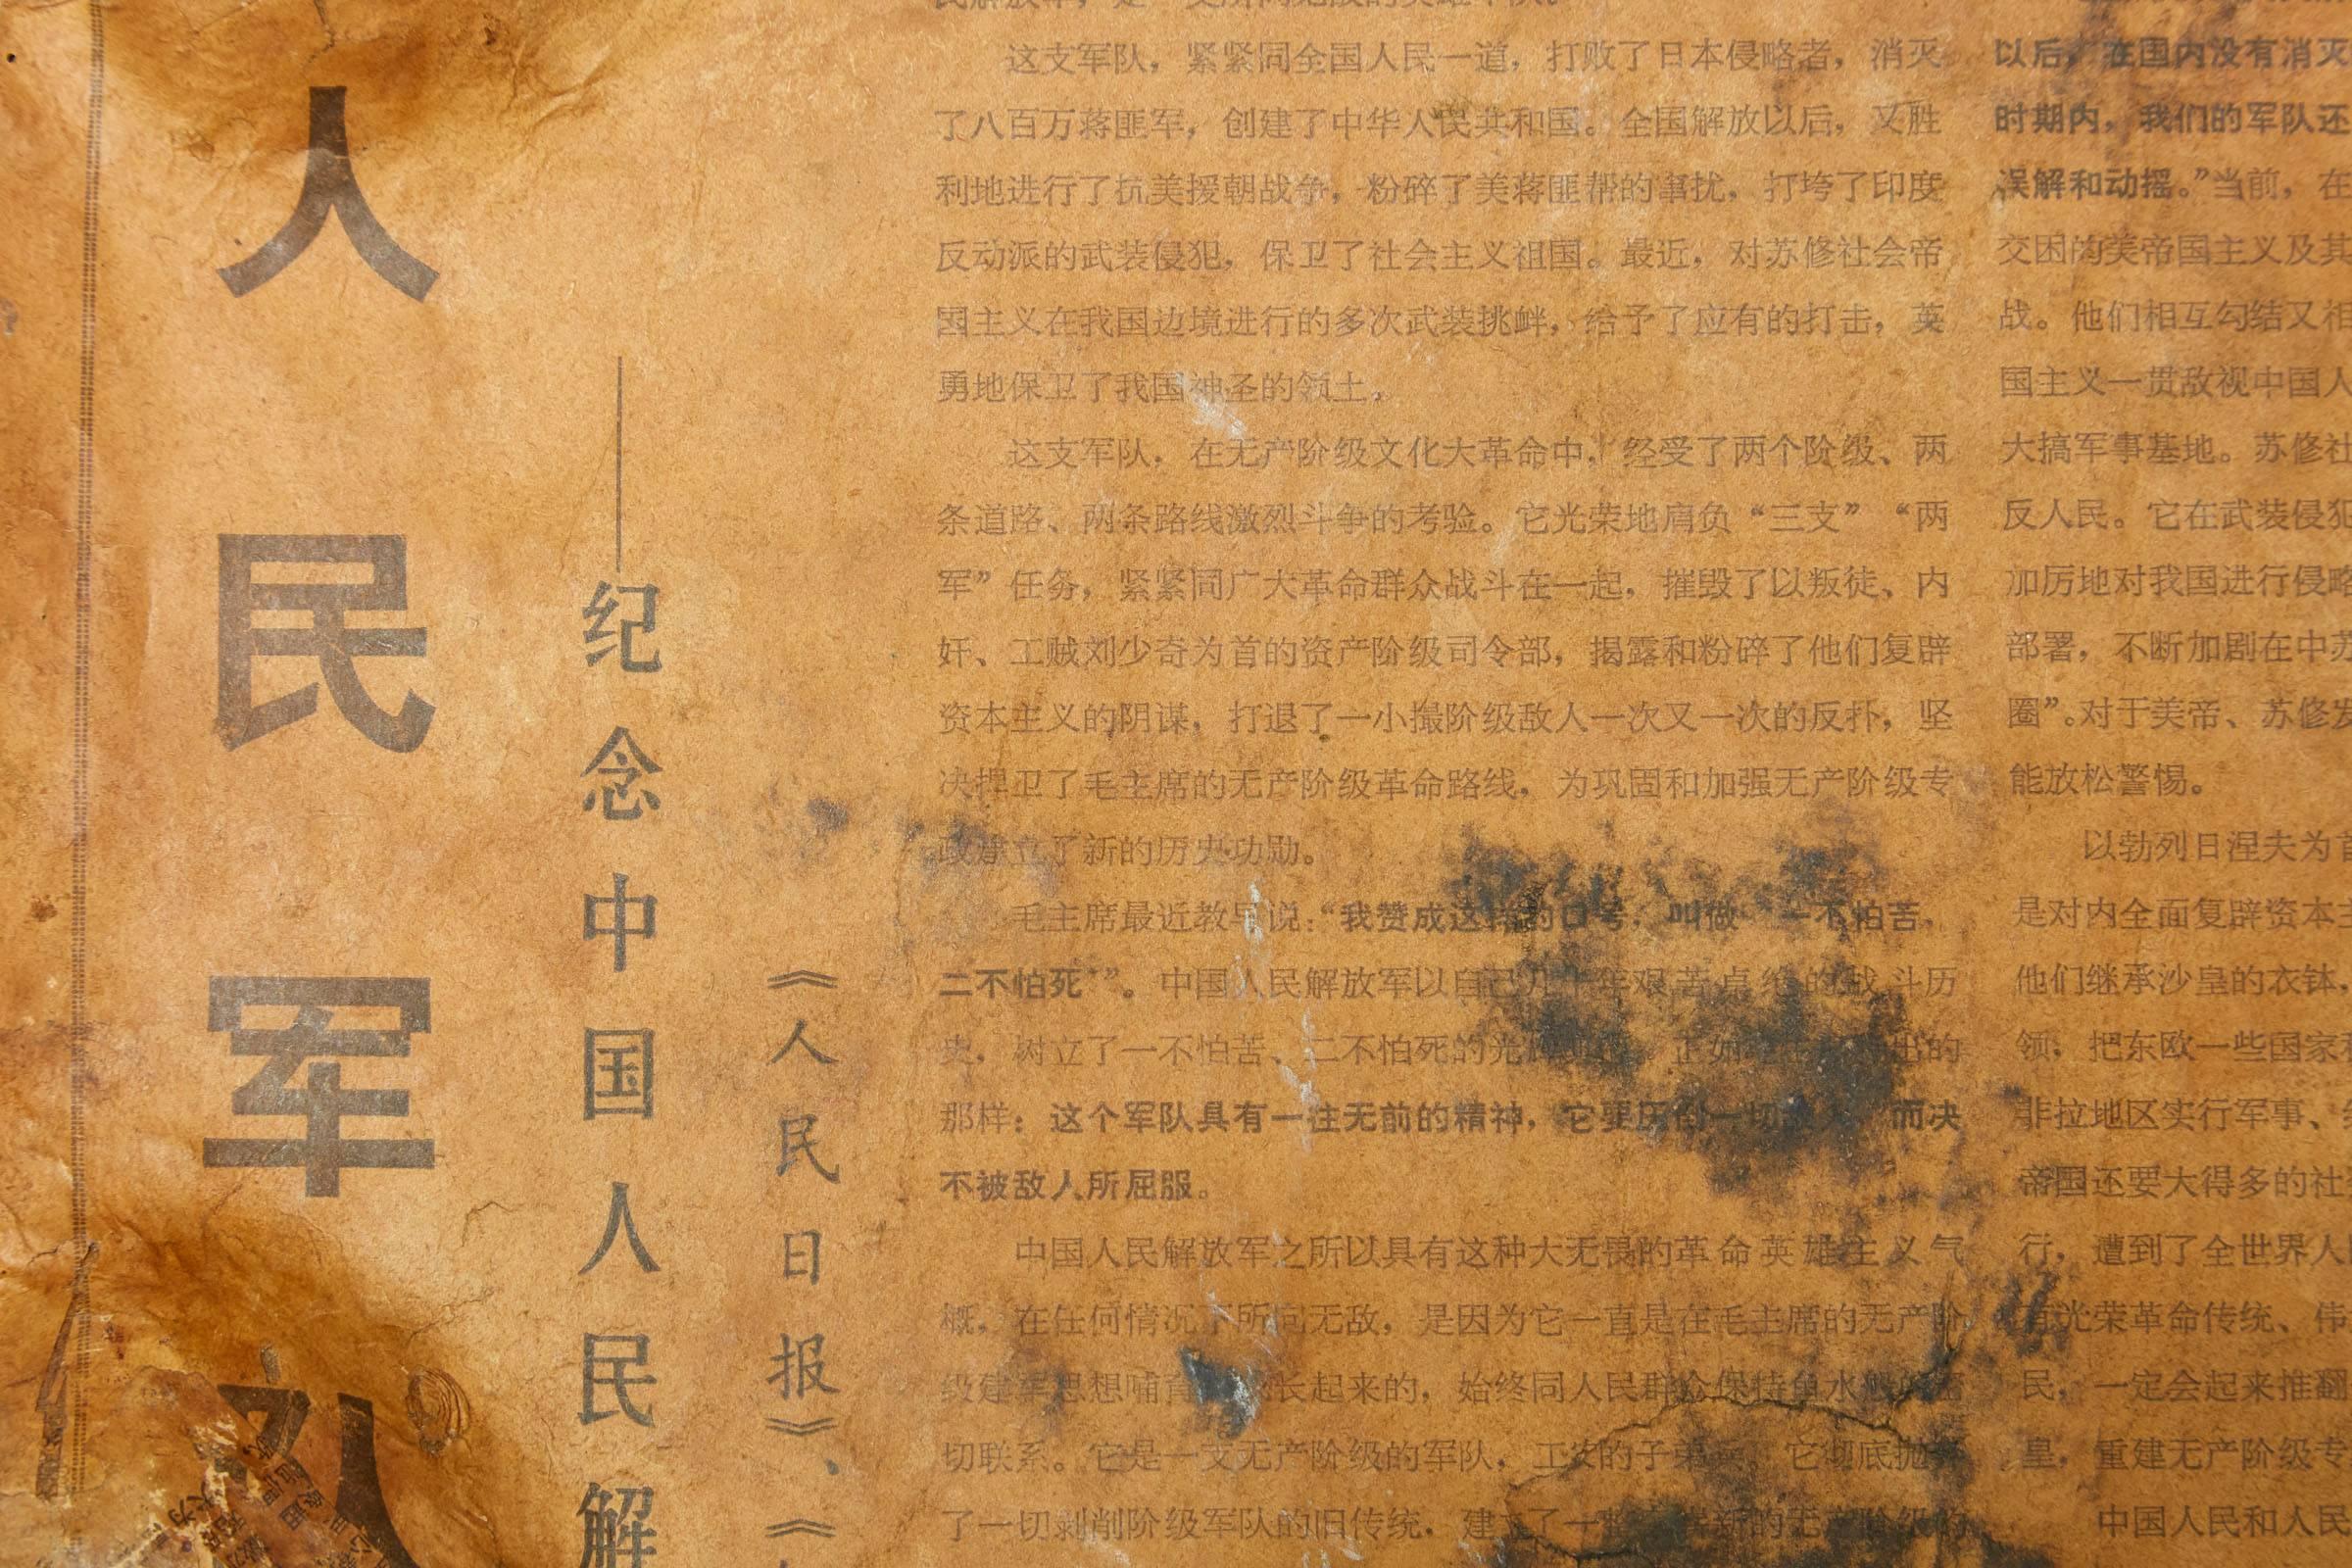 人民军队
——纪念中国人民解
《人民日报》、《
这支军队，紧紧同全国人民一道，打败了日本侵略者，消灭
了八百万蒋匪军，创建了中华人民共和国。全国解放以后，又胜
利地进行了抗美援朝战争，粉碎了美蒋匪帮的窜扰，打垮了印度
反动派的武装侵犯，保卫了社会主义祖国。最近，对苏修社会帝
国主义在我国边境进行的多次武装挑衅，给予了应有的打击，英
勇地保卫了我国神圣的领土。
这支军队，在无产阶级文化大革命中，经受了两个阶级、两
条道路、两条路线激烈斗争的考验。它光荣地肩负“三支”“两
军”任务，紧紧同广大革命群众战斗在一起，摧毁了以叛徒、内
奸、工贼刘少奇为首的资产阶级司令部，揭露和粉碎了他们复辟
资本主义的阴谋，打退了一小撮阶级敌人一次又一次的反扑，坚
决捍卫了毛主席的无产阶级革命路线，为巩固和加强无产阶级专
政建立了新的历史功勋。
毛主席最近教导说：“我赞成这样的口号，叫做‘一不怕苦，
二不怕死’”。中国人民解放军以自己几十年艰苦卓绝的战斗历
史，树立了一不怕苦、二不怕死的光 正如 出的
那样：这个军队具有一往无前的精神，它要压倒一切敌人，而决
不被敌人所屈服。
中国人民解放军之所以具有这种大无畏的革命英雄主义气
概，在任何情况下所向无敌，是因为它一直是在毛主席的无产阶
级建军思想哺育 长起来的，始终同人民群众保持鱼水
切联系。它是一支无产阶级的军队，工农的子弟 它彻底抛弃
了一切剥削阶级军队的旧传统，建立了一 新的无产阶级的
以后，在国内没有消灭
时期内，我们的军队还
误解和动摇。”当前，在
交困的美帝国主义及其
战。他们相互勾结又相
国主义一贯敌视中国人
大搞军事基地。苏修社
反人民。它在武装侵犯
加厉地对我国进行侵略
部署，不断加剧在中苏
圈”。对于美帝、苏修
能放松警惕。
以勃列日涅夫为首
是对内全面复辟资本主
他们继承沙皇的衣钵，
领，把东欧一些国家
非拉地区实行军事、
帝国还要大得多的社
行，遭到了全世界人
有光荣革命传统、伟
民，一定会起来推翻
皇，重建无产阶级专
中国人民和人民